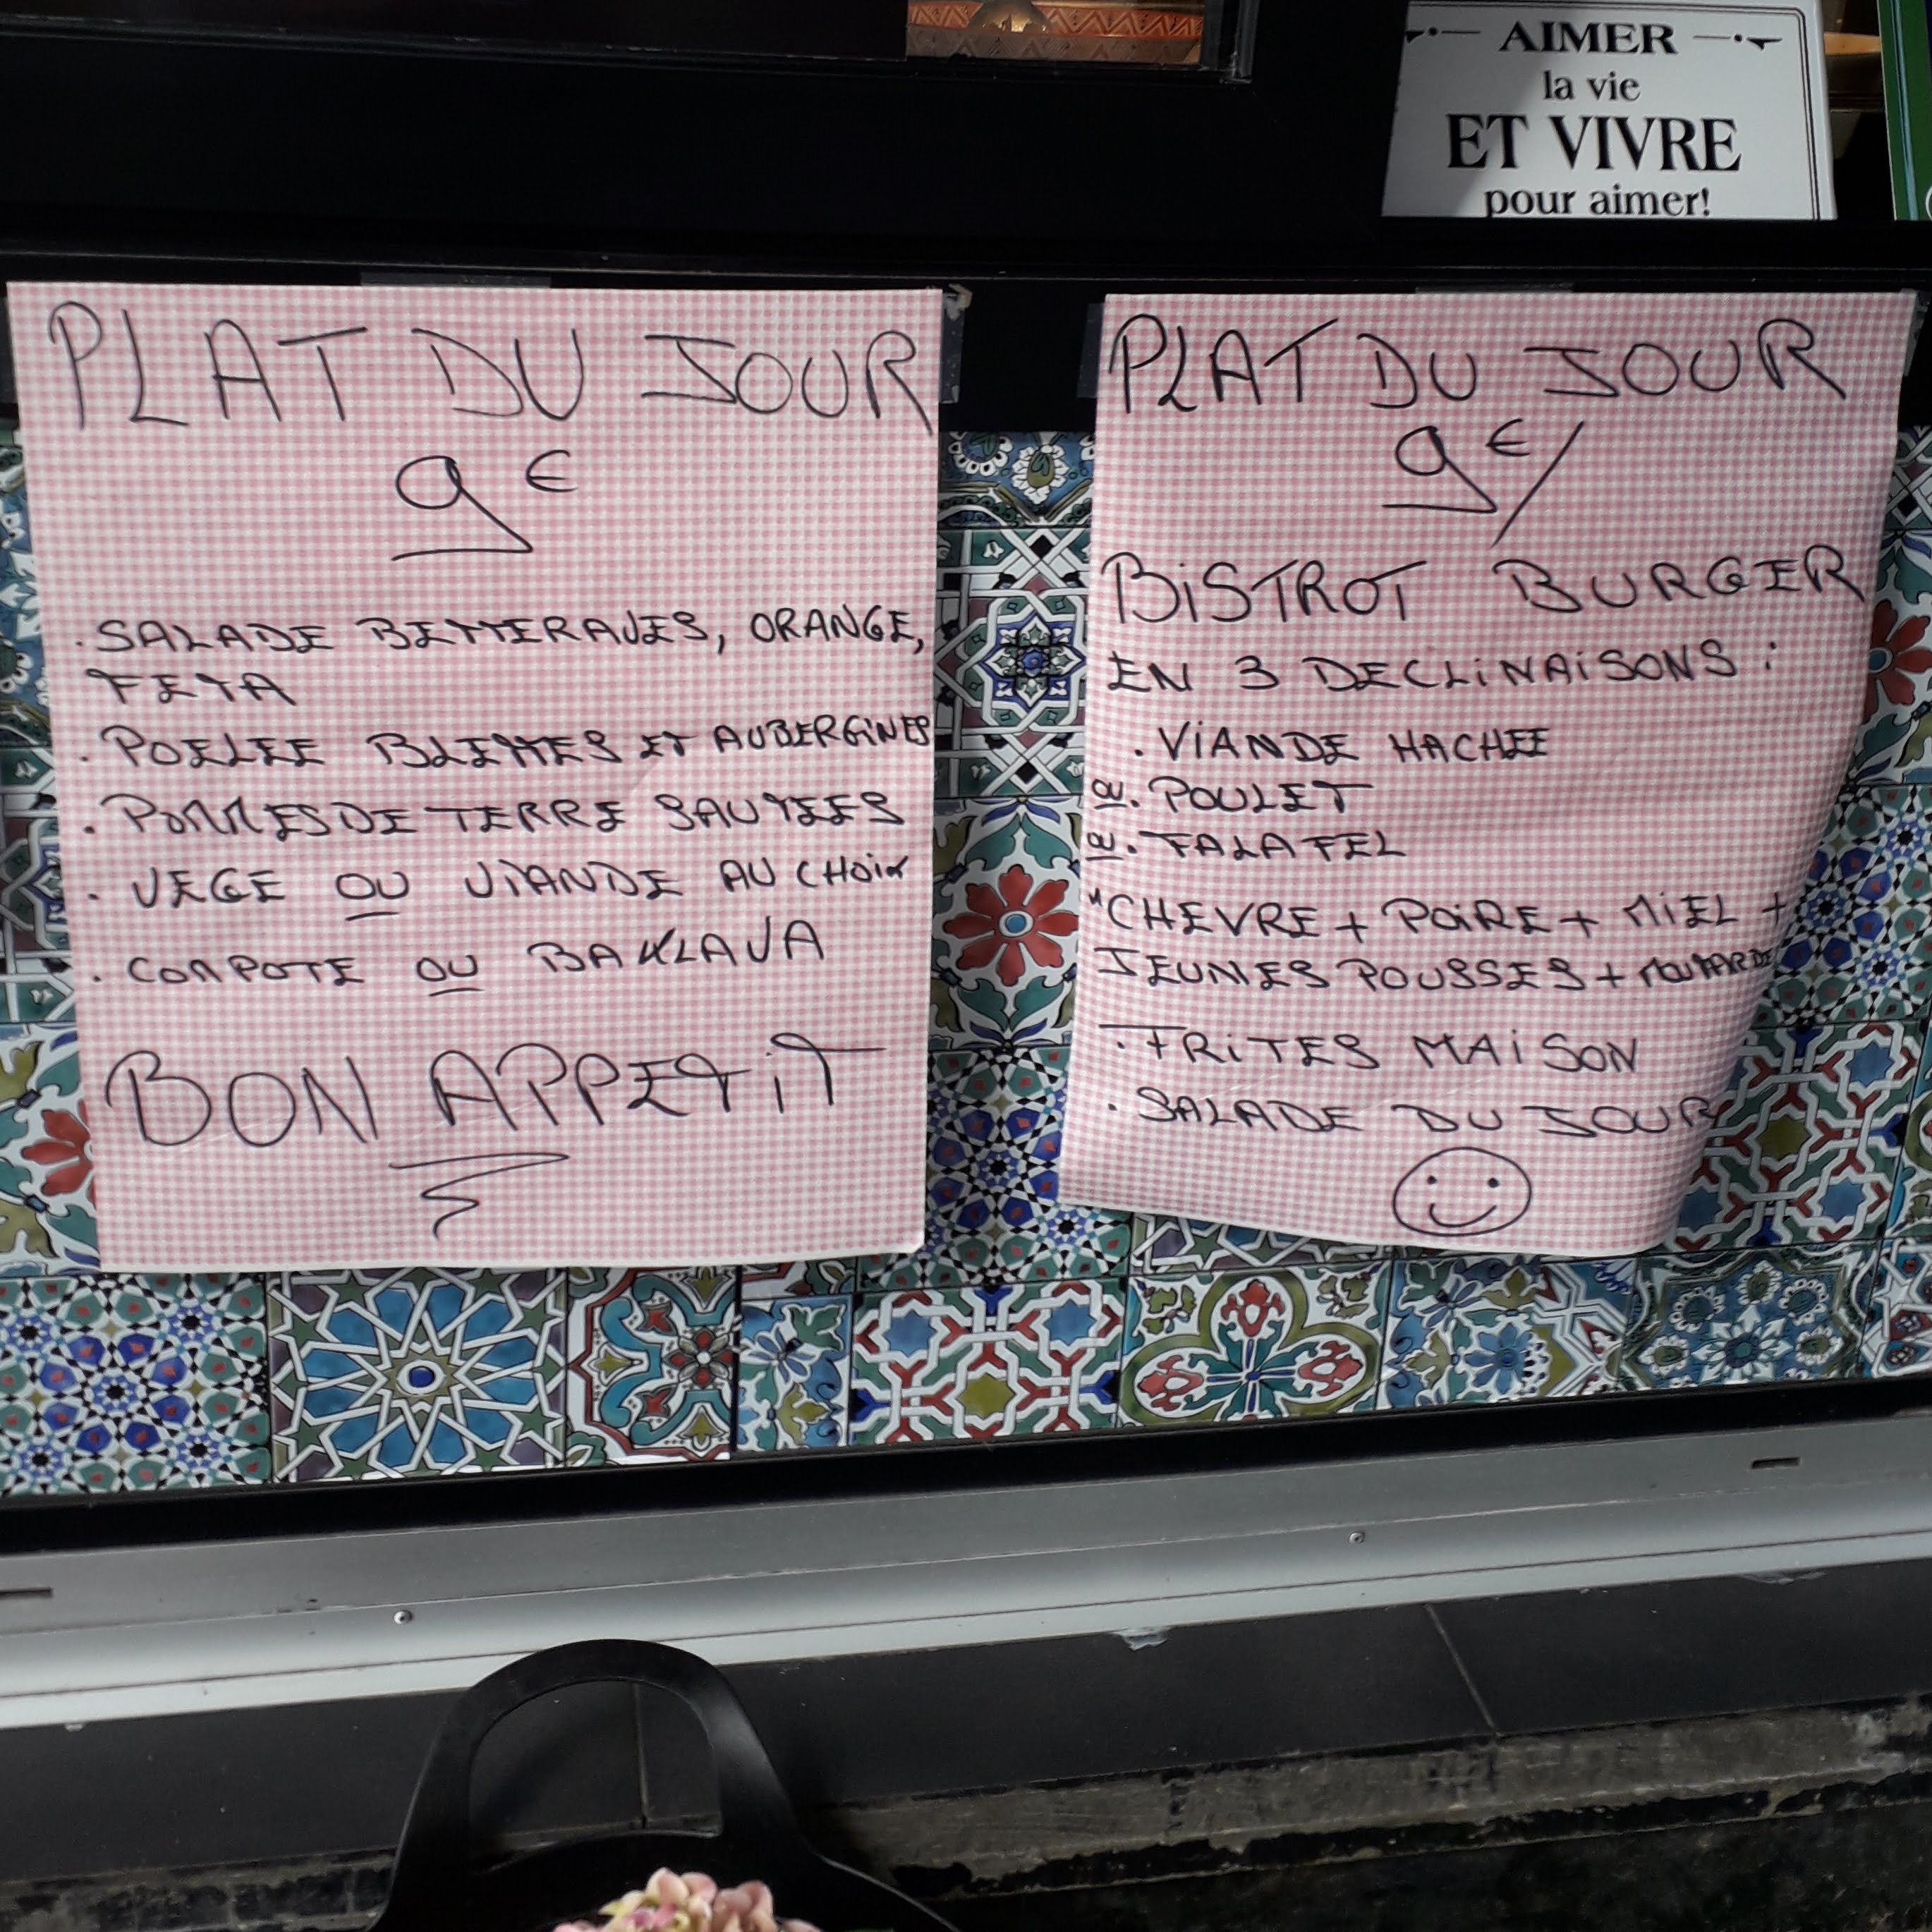 AIMER
la vie
ET VIVRE
pour aimer!
PLAT DU JOUR
9€
. SALADE BETTERAVES, ORANGE,
FETA
. POELEE BLETTES ET AUBERGINES
. POMMES DE TERRE SAUTEES
. VEGE OU VIANDE AU CHOIX
. COMPOTE OU BAKLAVA
BON APPETIT
PLAT DU JOUR
9€/
BiSTROT BURGER
EN 3 DECLiNAiSONS :
. ViANDE HACHEE
ou. POULET
ou. FALAFEL
*CHEVRE + POiRE + MiEL +
JEUNES POUSSES + MOUTARDE
. FRiTES MAiSON
. SALADE DU JOUR